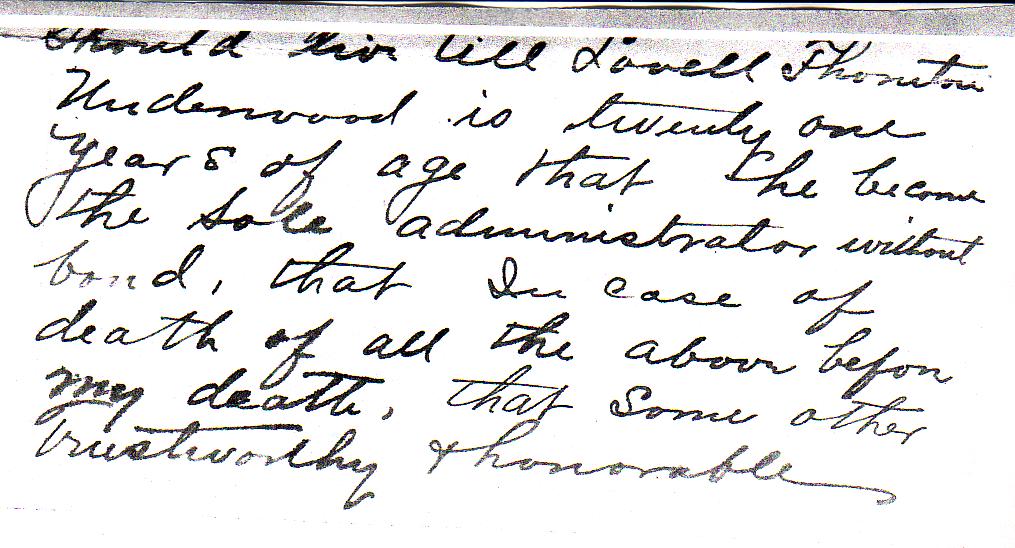 should live till Lovell Thornton
Underwood is twenty one
years of age that she become
the sole administrator without
bond, that In case of
death of all the above before
my death, that some other
Trustworthy & honorable